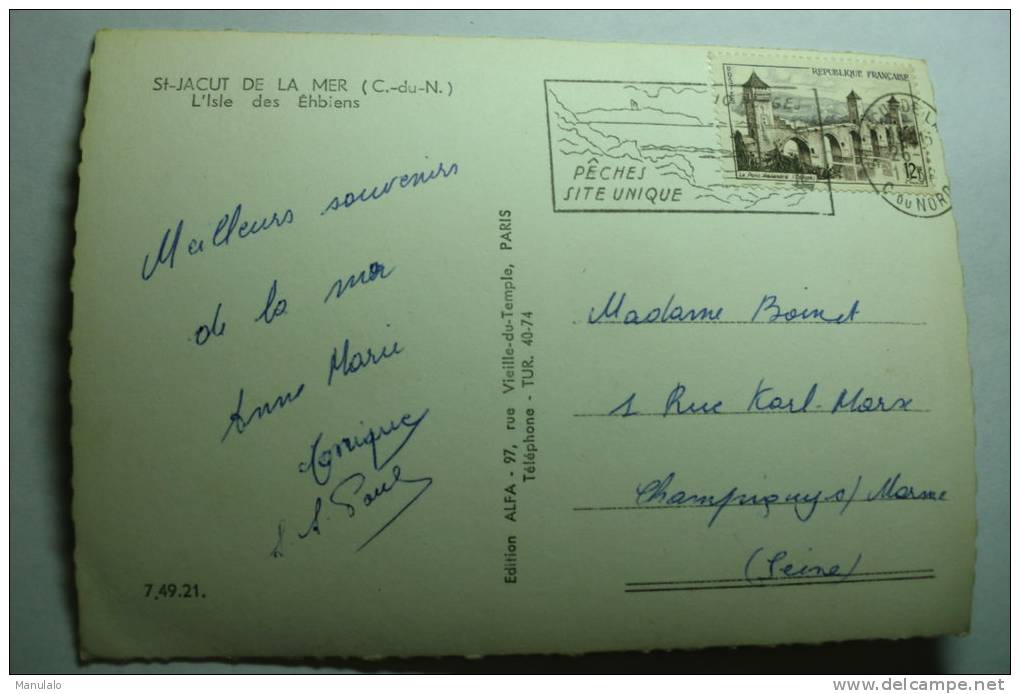 St-JACUT DE LA MER (C.-du-N.)
L'Isle des Éhbiens
PÊCHES
SITE UNIQUE
REPUBLIQUE FRANÇAISE
12F
C. DU NORD
Meilleurs souvenirs
de la mer
Anne Marie
Monique
Paul
7.49.21.
Edition ALFA - 97, rue Vieille-du-Temple, PARIS
Téléphone - TUR. 40-74
Madame Boinet
1 Rue Karl-Marx
Champigny s/ Marne
(Seine)
Manulalo
www.delcampe.net